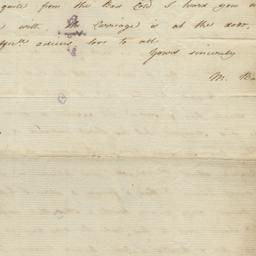 quite from the Bad Cold I heard you
with. The Carriage is at the door,
adieu, love to all
Yours sincerely
M. Ba